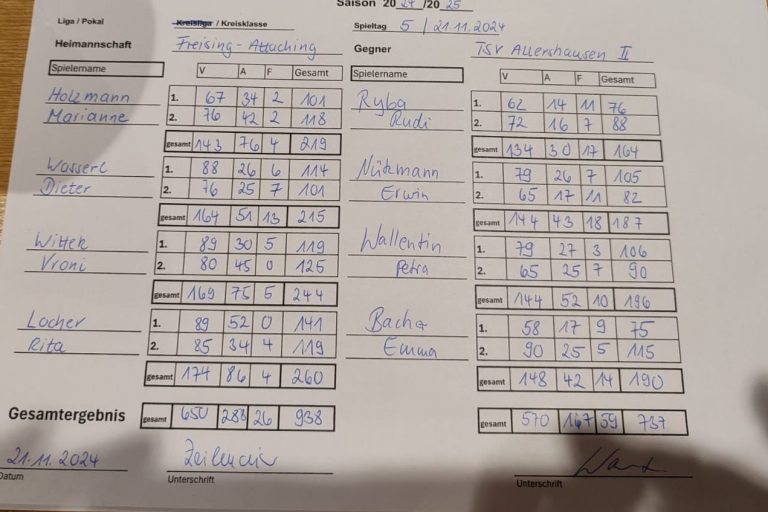 Saison 2024/2025
Liga / Pokal Kreisliga / Kreisklasse Spieltag 5 / 21.11.2024
Heimannschaft Freising-Attaching Gegner TSV Allershausen II
Spielername V A F Gesamt Spielername V A F Gesamt
Holzmann 1. 67 34 2 101 Ryba 1. 62 14 11 76
Marianne 2. 76 42 2 118 Rudi 2. 72 16 7 88
gesamt 143 76 4 219 gesamt 134 30 17 164
Wasserl 1. 88 26 6 114 Nützmann 1. 79 26 7 105
Dieter 2. 76 25 7 101 Erwin 2. 65 17 11 82
gesamt 164 51 13 215 gesamt 144 43 18 187
Wittek 1. 89 30 5 119 Wallentin 1. 79 27 3 106
Vroni 2. 80 45 0 125 Petra 2. 65 25 7 90
gesamt 169 75 5 244 gesamt 144 52 10 196
Locher 1. 89 52 0 141 1. 58 17 9 75
Rita 2. 85 34 4 119 Emma 2. 90 25 5 115
gesamt 174 86 4 260 gesamt 148 42 14 190
Gesamtergebnis gesamt 650 288 26 938 gesamt 570 167 59 737
21.11.2024
Datum Unterschrift Unterschrift